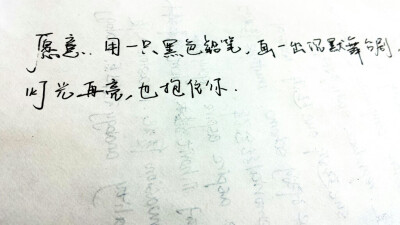 愿意.用一只黑色铅笔,画一出沉默舞台剧.
灯光再亮,也抱住你.